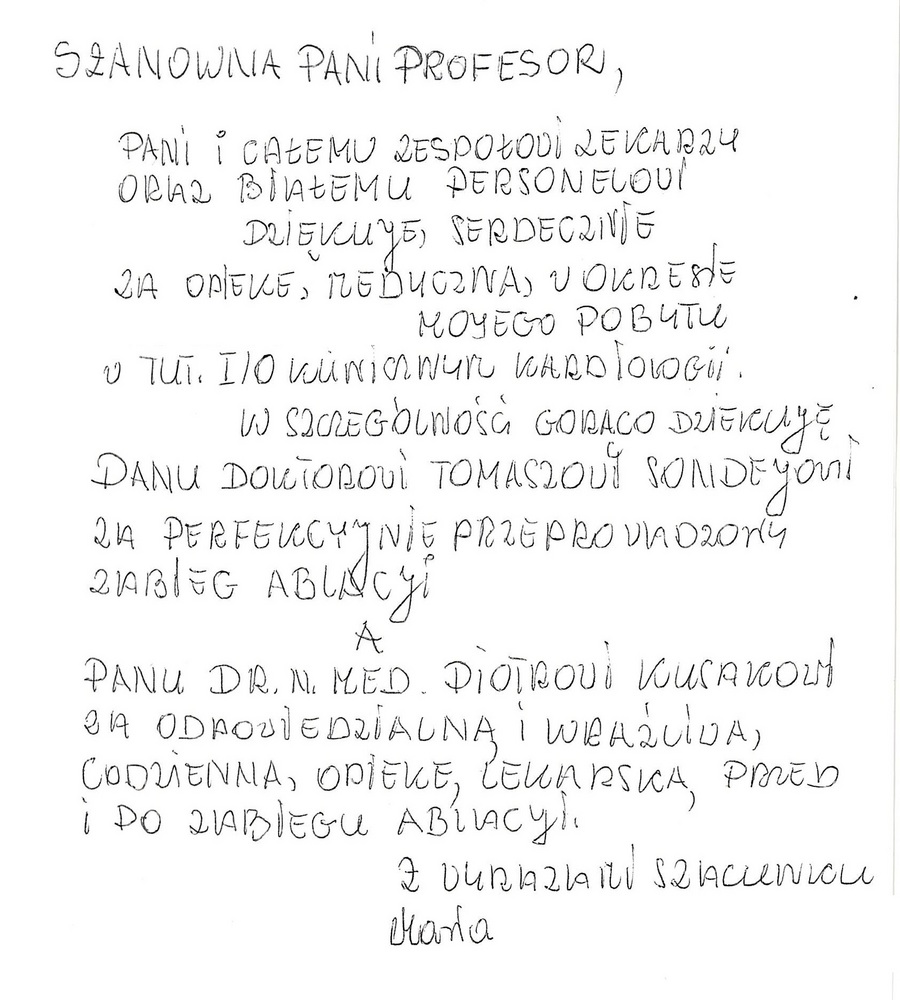 SZANOWNA PANI PROFESOR,
PANI i CAŁEMU ZESPOŁOWI LEKARZY
ORAZ BIAŁEMU PERSONELOWI
DZIĘKUJĘ SERDECZNIE
ZA OPIEKĘ MEDYCZNĄ W OKRESIE
MOJEGO POBYTU
W TUT. I/O KLINICZNYM KARDIOLOGII.
W SZCZEGÓLNOŚCI GORĄCO DZIĘKUJĘ
PANU DOKTOROWI TOMASZOWI SONDEJOWI
ZA PERFEKCYJNIE PRZEPROWADZONY
ZABIEG ABLACJI
A
PANU DR. N. MED. PIOTROWI KUSAKOWI
ZA ODPOWIEDZIALNĄ I WRAŻLIWĄ,
CODZIENNĄ OPIEKĘ LEKARSKĄ PRZED
i PO ZABIEGU ABLACYJ.
Z WYRAZAMI SZACUNKU
Maria